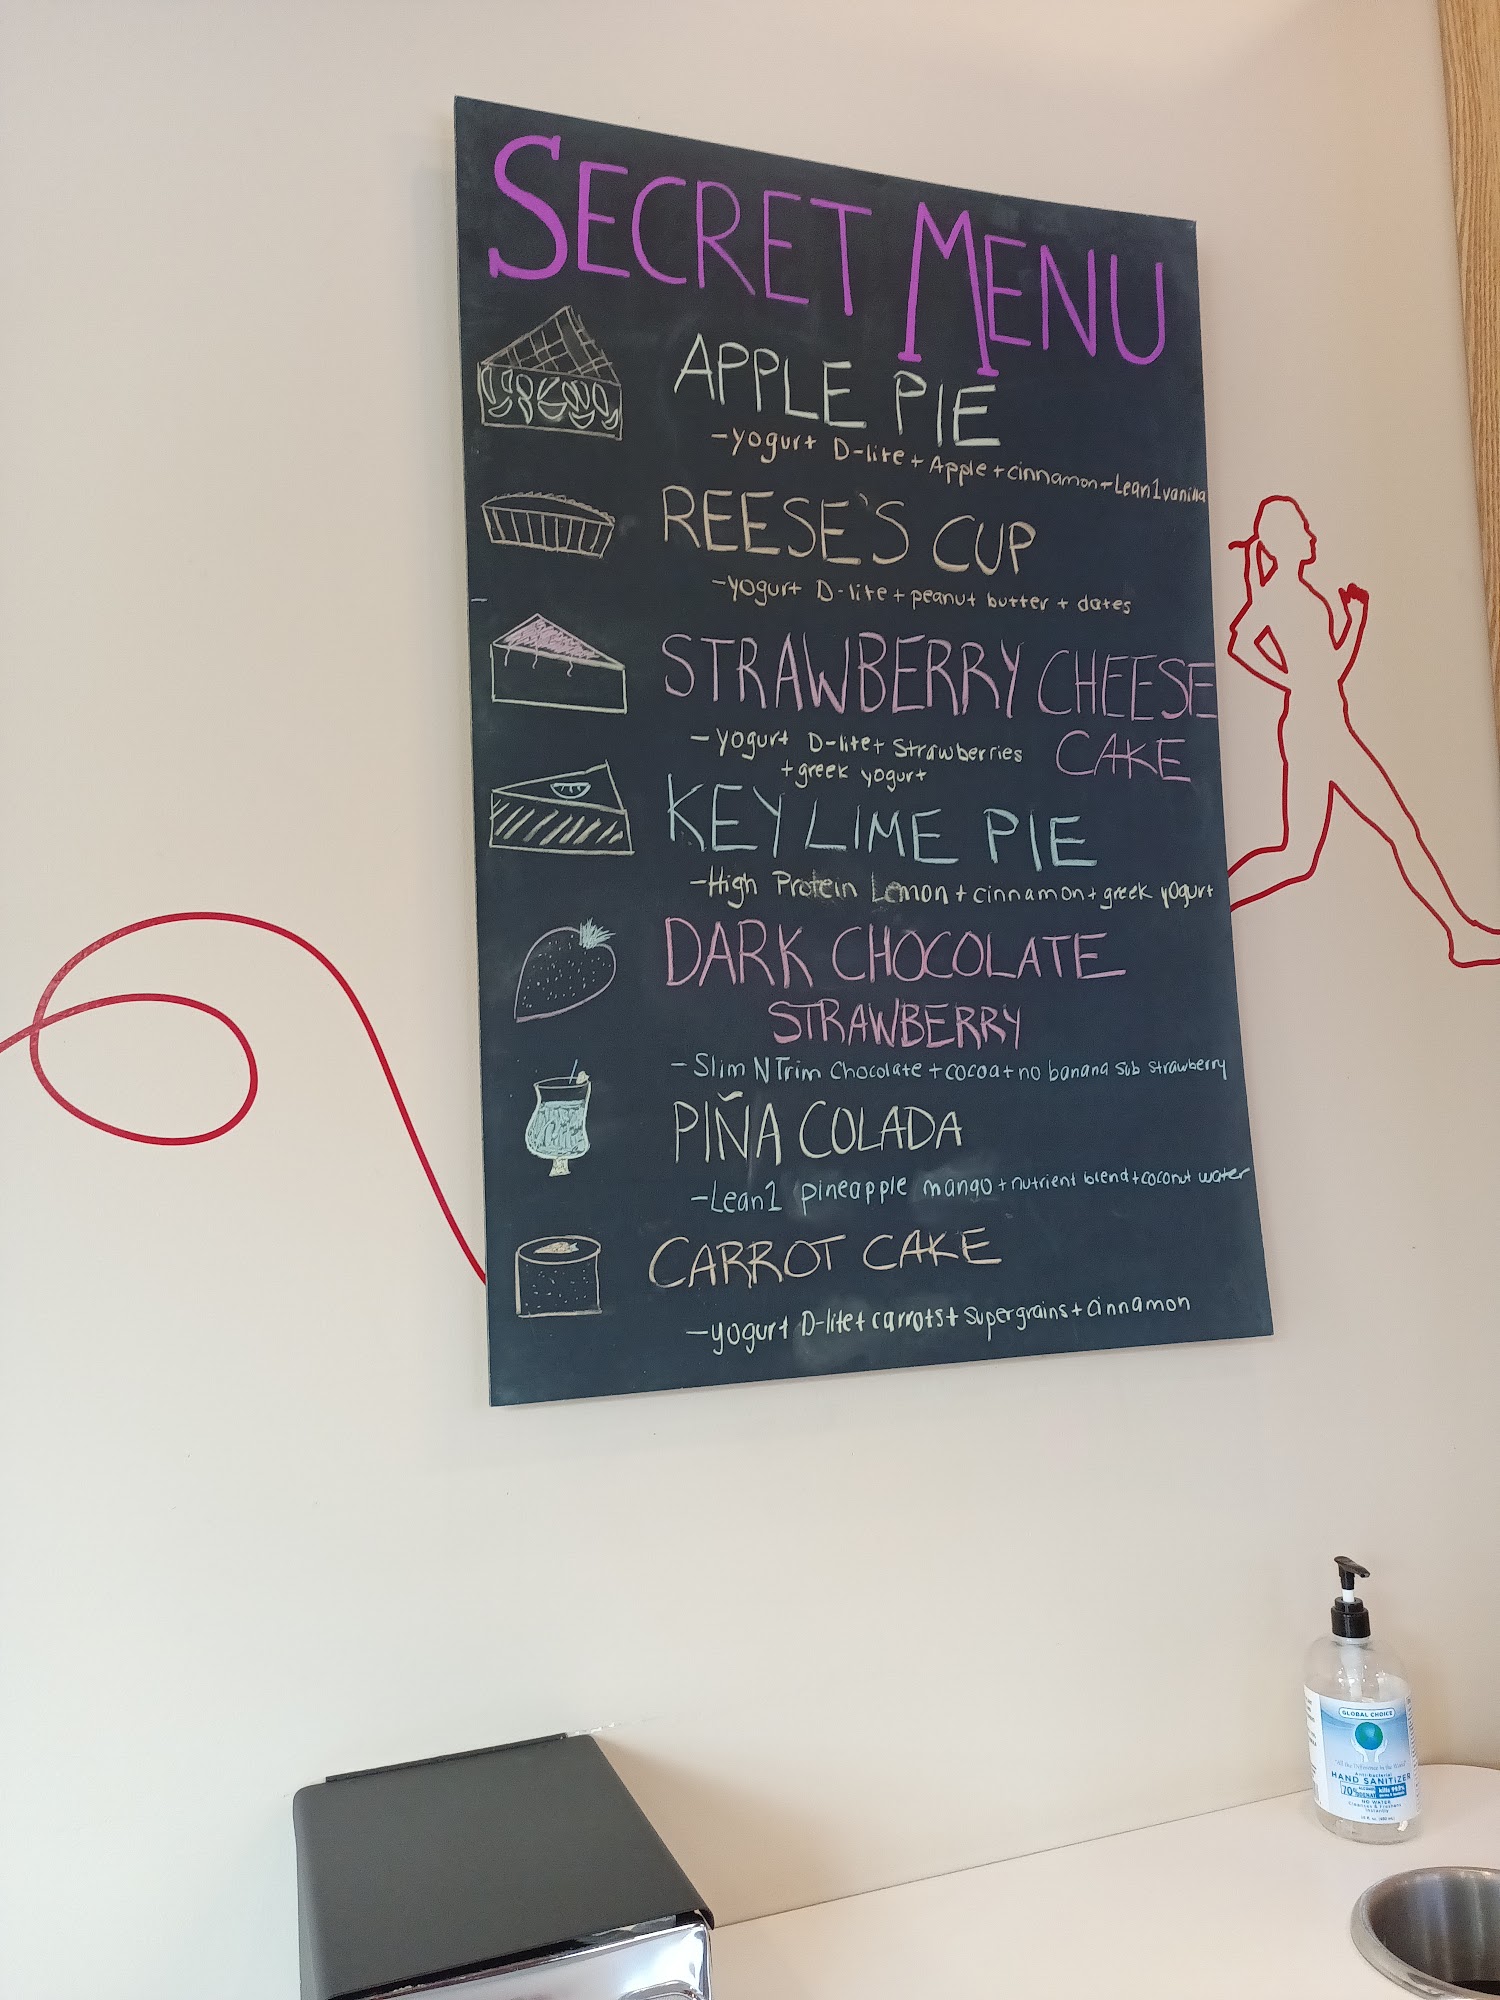 SECRET MENU
APPLE PIE
-yogurt D-lite + Apple + cinnamon + Lean1 vanilla
REESE'S CUP
-yogurt D-lite + peanut butter + dates
STRAWBERRY CHEESE
CAKE
-yogurt D-lite + strawberries
+ greek yogurt
KEY LIME PIE
-High Protein Lemon + cinnamon + greek yogurt
DARK CHOCOLATE
STRAWBERRY
-Slim N Trim Chocolate + cocoa + no banana sub strawberry
PIÑA COLADA
-Lean1 pineapple mango + nutrient blend + coconut water
CARROT CAKE
-yogurt D-lite + carrots + supergrains + cinnamon
GLOBAL CHOICE
"All the Difference in the World"
Anti-bacterial
HAND SANITIZER
70% ALCOHOL
kills 99.9%
NO WATER
Cleanses & Freshens
Instantly